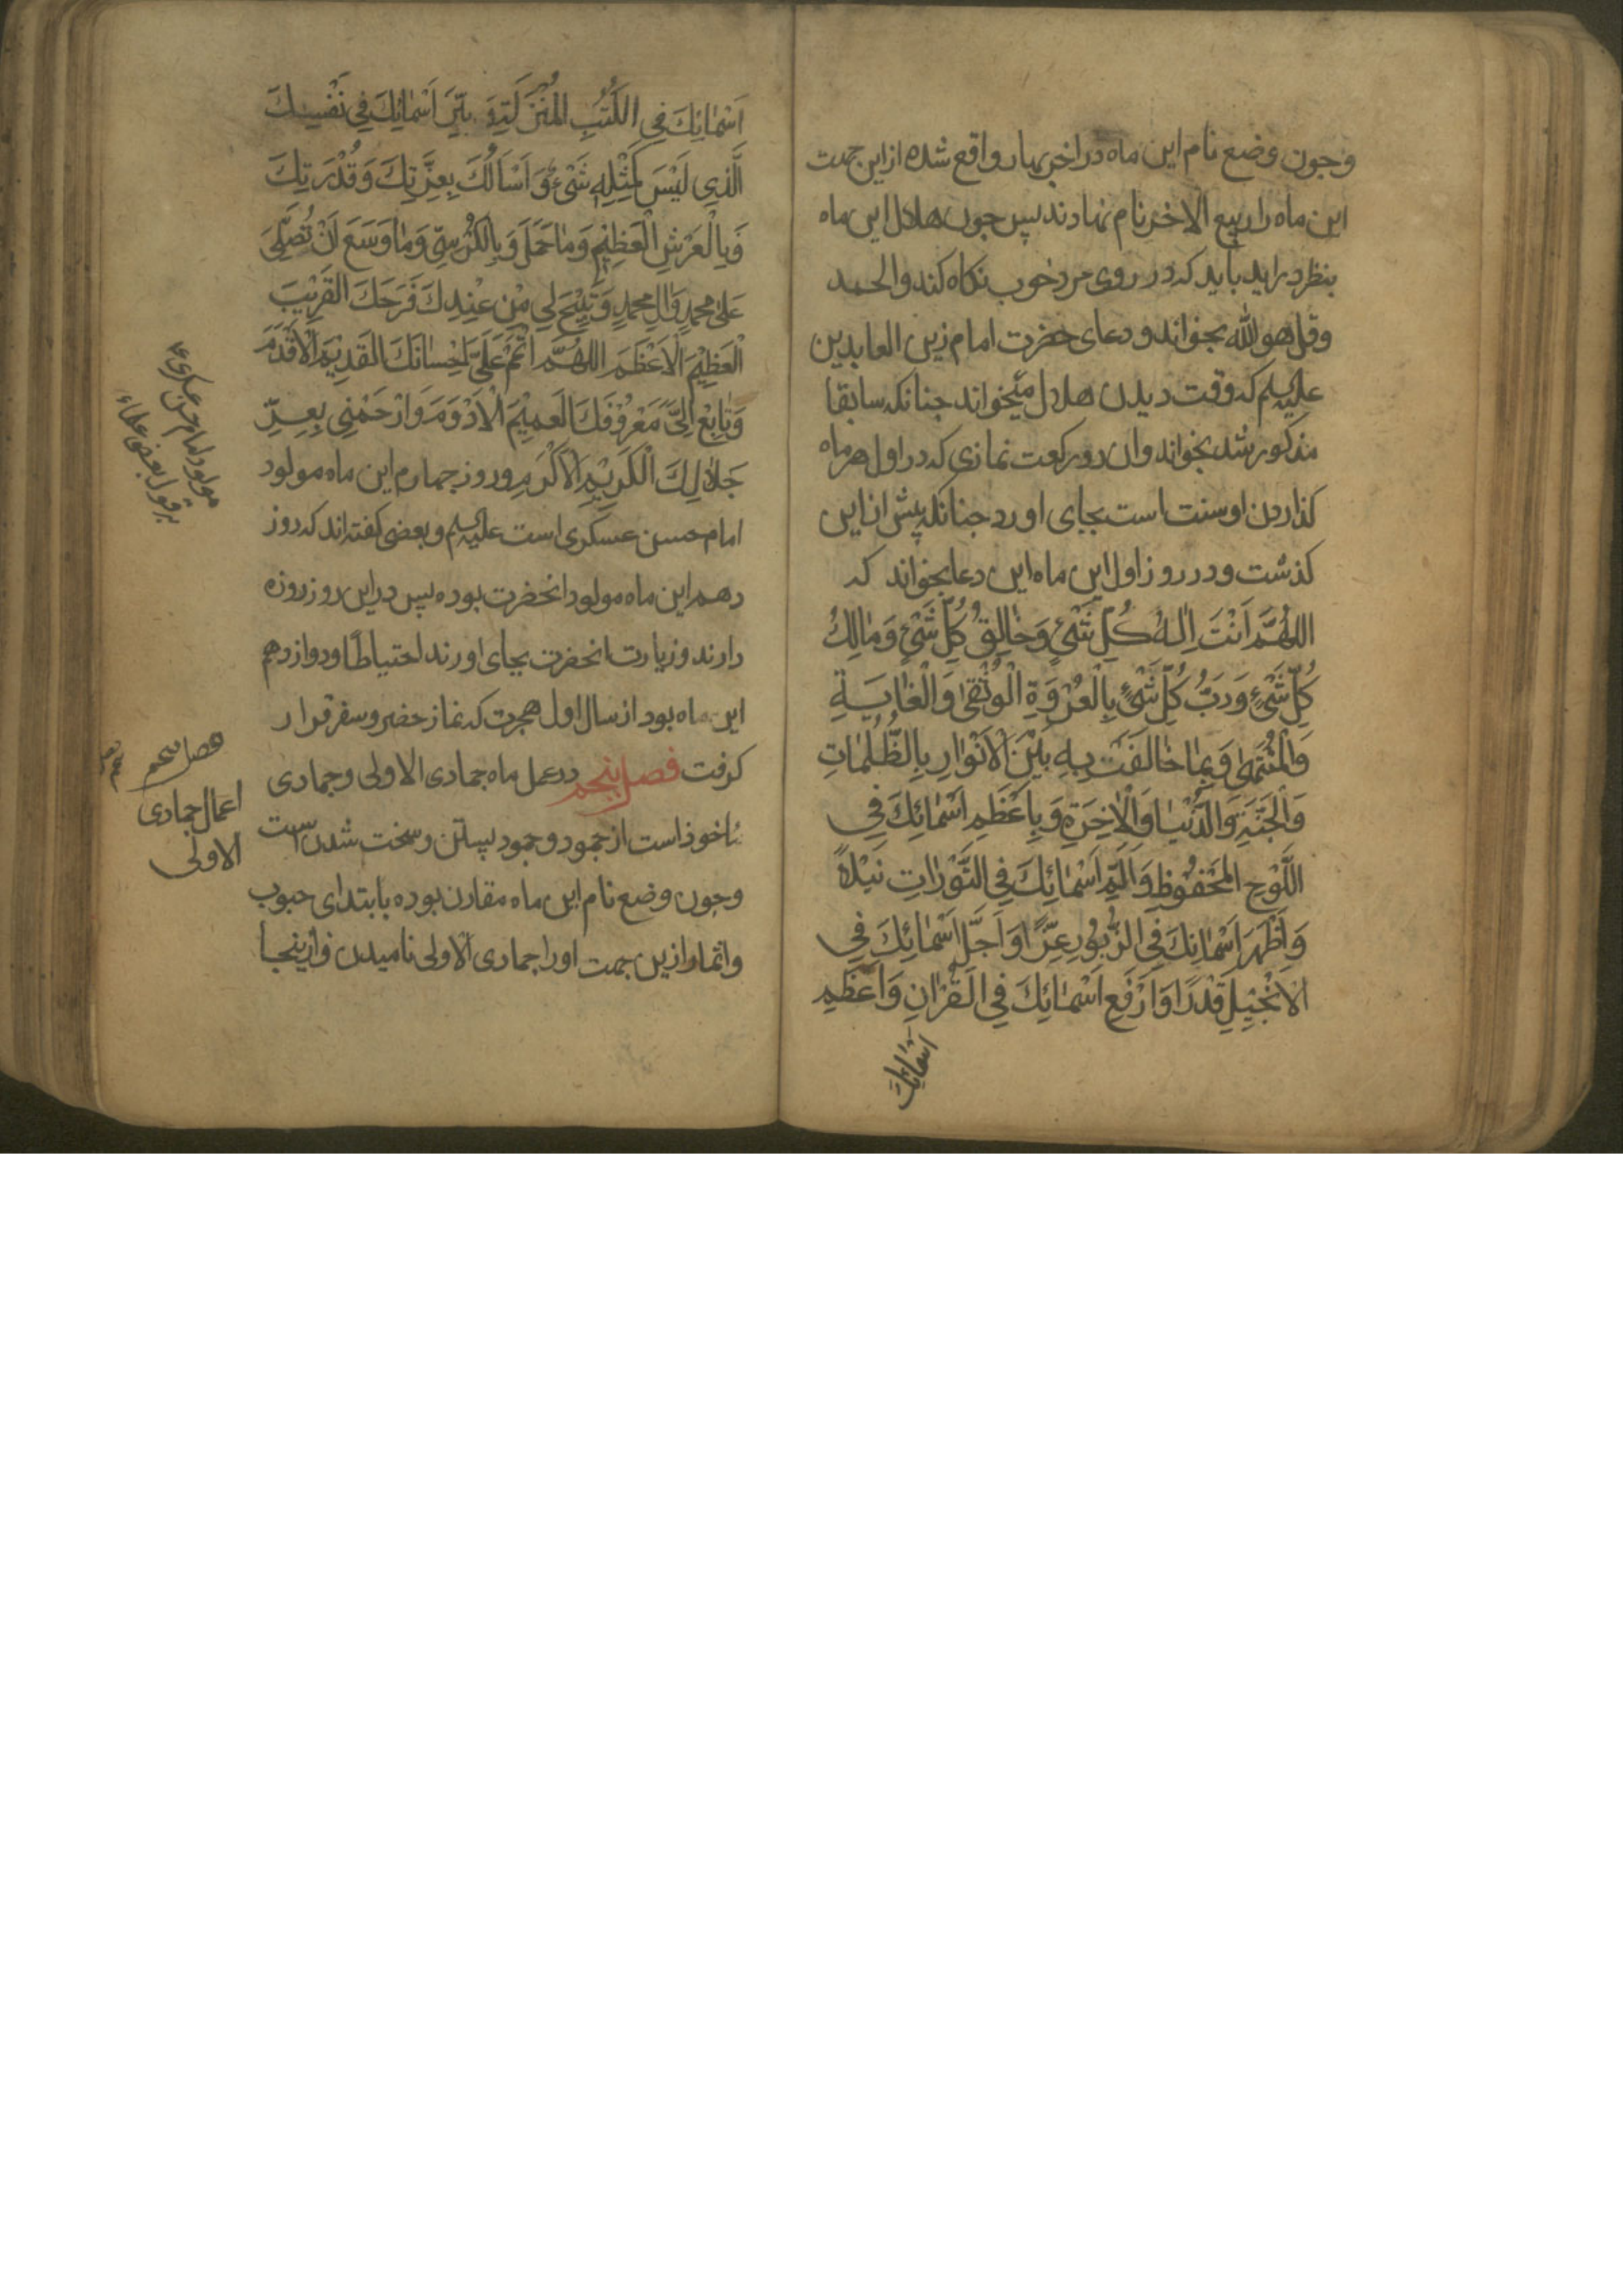 وجون وضع نام این ماه در اخر بهار واقع شده از این جهت
این ماه را ربیع الاخر نام نهادند پس جون هلال این ماه
بنظر در اید باید که در روی مرد خوب نکاه کند والحمد
وقل هو الله بخواند و دعای حضرت امام زین العابدین
علیه السلم که وقت دیدن هلال میخواند جنانکه سابقا
مذکور شد بخواند وان دو رکعت نمازی که در اول هر ماه
کذاردن او سنت است بجای اورد جنانکه پیش از این
کذشت و در روز اول این ماه این دعا بخواند که
اَللّٰهُمَّ اَنْتَ اِلٰهُ كُلِّ شَيْءٍ وَخٰالِقُ كُلِّ شَيْءٍ وَمٰالِكُ
كُلِّ شَيْءٍ وَرَبُّ كُلِّ شَيْءٍ بِالْعُرْوَةِ الْوُثْقىٰ وَالْغٰايَةِ
وَالْمُنْتَهىٰ وَبِمٰا خٰالَفْتَ بِهِ بَيْنَ الْاَنْوٰارِ بِالظُّلُمٰاتِ
وَالْجَنَّةِ وَالدُّنْيٰا وَالْاٰخِرَةِ وَبِاَعْظَمِ اَسْمٰائِكَ فِي
اللَّوْحِ الْمَحْفُوظِ وَاَتَمِّ اَسْمٰائِكَ فِي التَّوْرٰاتِ نَبْلًا
وَاَظْهَرِ اَسْمٰائِكَ فِي الزَّبُورِ عِزًّا وَاَجَلِّ اَسْمٰائِكَ فِي
الْاِنْجِيلِ قَدْرًا وَاَرْفَعِ اَسْمٰائِكَ فِي الْقُرْاٰنِ وَاَعْظَمِ
اَسْمٰائِكَ
اَسْمٰائِكَ فِي الْكُتُبِ الْمُنْزَلَةِ وَ اَسْمٰائِكَ فِي نَفْسِكَ
الَّذِي لَيْسَ كَمِثْلِهِ شَيْءٌ وَاَسْاَلُكَ بِعِزَّتِكَ وَقُدْرَتِكَ
وَبِالْعَرْشِ الْعَظِيْمِ وَمٰا حَمَلَ وَبِالْكُرْسِيِّ وَمٰا وَسَعَ اَنْ تُصَلِّيَ
عَلىٰ مُحَمَّدٍ وَاٰلِ مُحَمَّدٍ وَتُبِيْحَ لِي مِنْ عِنْدِكَ فَرَجَكَ الْقَرِيْبَ
الْعَظِيْمَ الْاَعْظَمَ اَللّٰهُمَّ اَتْمِمْ عَلَيَّ اِحْسٰانَكَ الْقَدِيْمَ الْاَقْدَمَ
وَتٰابِعْ اِلَيَّ مَعْرُوْفَكَ الْعَمِيْمَ الْاَدْوَمَ وَارْحَمْنِي بِعِزِّ
جَلٰالِكَ الْكَرِيْمِ الْاَكْرَمِ وروز جهارم این ماه مولود
امام حسن عسکری است علیه السلم و بعضی کفته اند که روز
دهم این ماه مولود انحضرت بوده پس در این روز روزه
دارند و زیارت انحضرت بجای اورند احتیاطًا و دوازدهم
این ماه بود از سال اول هجرت که نماز حضر و سفر قرار
کرفت فصل پنجم در عمل ماه جمادی الاولی و جمادی
ماخوذ است از جمود و جمود بستن و سخت شدن است
وجون وضع نام این ماه مقارن بوده با ابتدای حبوب
واثمار ازین جهت او را جمادی الاولی نامیدن و از ینجا
مولود امام حسن عسکری ع
بر قول بعضی علماء
فصل پنجم
اعمال جمادی
الاولی